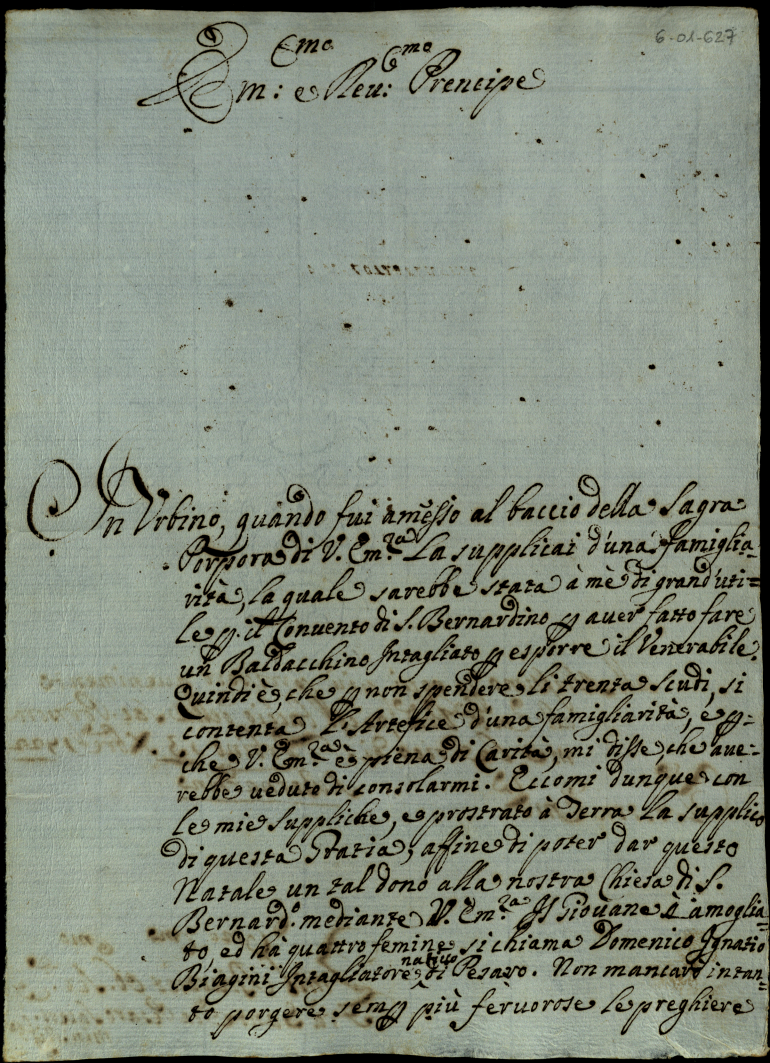 6-01-627
Em:mo e Reu:mo Prencipe
In Urbino, quando fui amesso al baccio della Sagra
Porpora di V. Em.za La supplicai d'una famiglia-
rità, la quale sarebbe stata à mè di grand'uti=
le p. il Convento di S. Bernardino p auer fatto fare
un Baldacchino Intagliato p esporre il Venerabile.
Quindi è, che p non spendere li trenta scudi, si
contenta L'Artefice d'una famigliarità, e p=
che V. Em.za è piena di Carità, mi disse che aue=
rebbe ueduto di consolarmi. Eccomi dunque con
le mie suppliche, e prostrato à Terra La supplico
di questa Gratia, affine di poter dar questo
Natale un tal dono alla nostra Chiesa di S.
Bernard.o mediante V. Em.za Il Giouane è amoglia=
to, ed hà quattro femine, si chiama Domenico Ignatio
Biagini Intagliatore nativo di Pesaro. Non mancarò intan=
to porgere semp più feruorose le preghiere